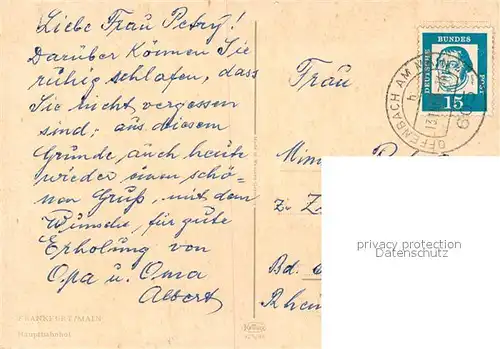 Liebe Frau Petry!
Darüber können Sie
ruhig schlafen, dass
Sie nicht vergessen
sind; aus diesem
Grunde, auch heute
wieder einen schö-
nen Gruß, mit dem
Wunsche, für gute
Erholung von
Opa u. Oma
Albert
FRANKFURT/MAIN
Hauptbahnhof
Frau
z. Z
Bd.
Rhein
DEUTSCHE BUNDES POST
15
OFFENBACH AM
privacy protection
Datenschutz